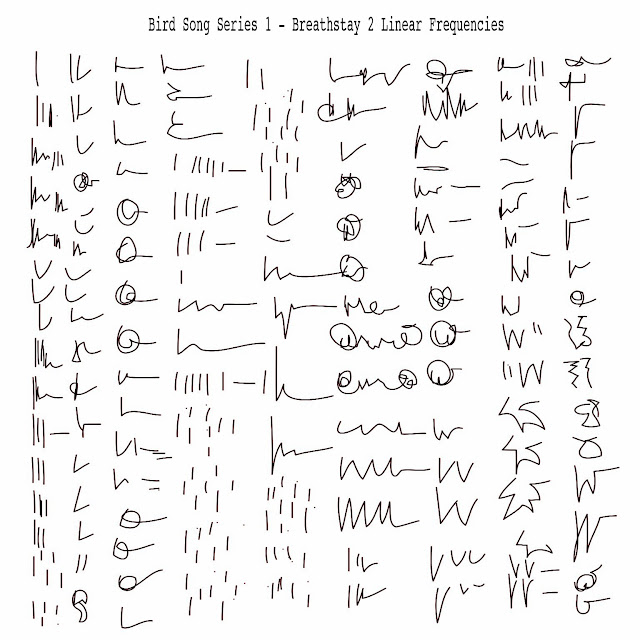 Bird Song Series 1 – Breathstay 2 Linear Frequencies